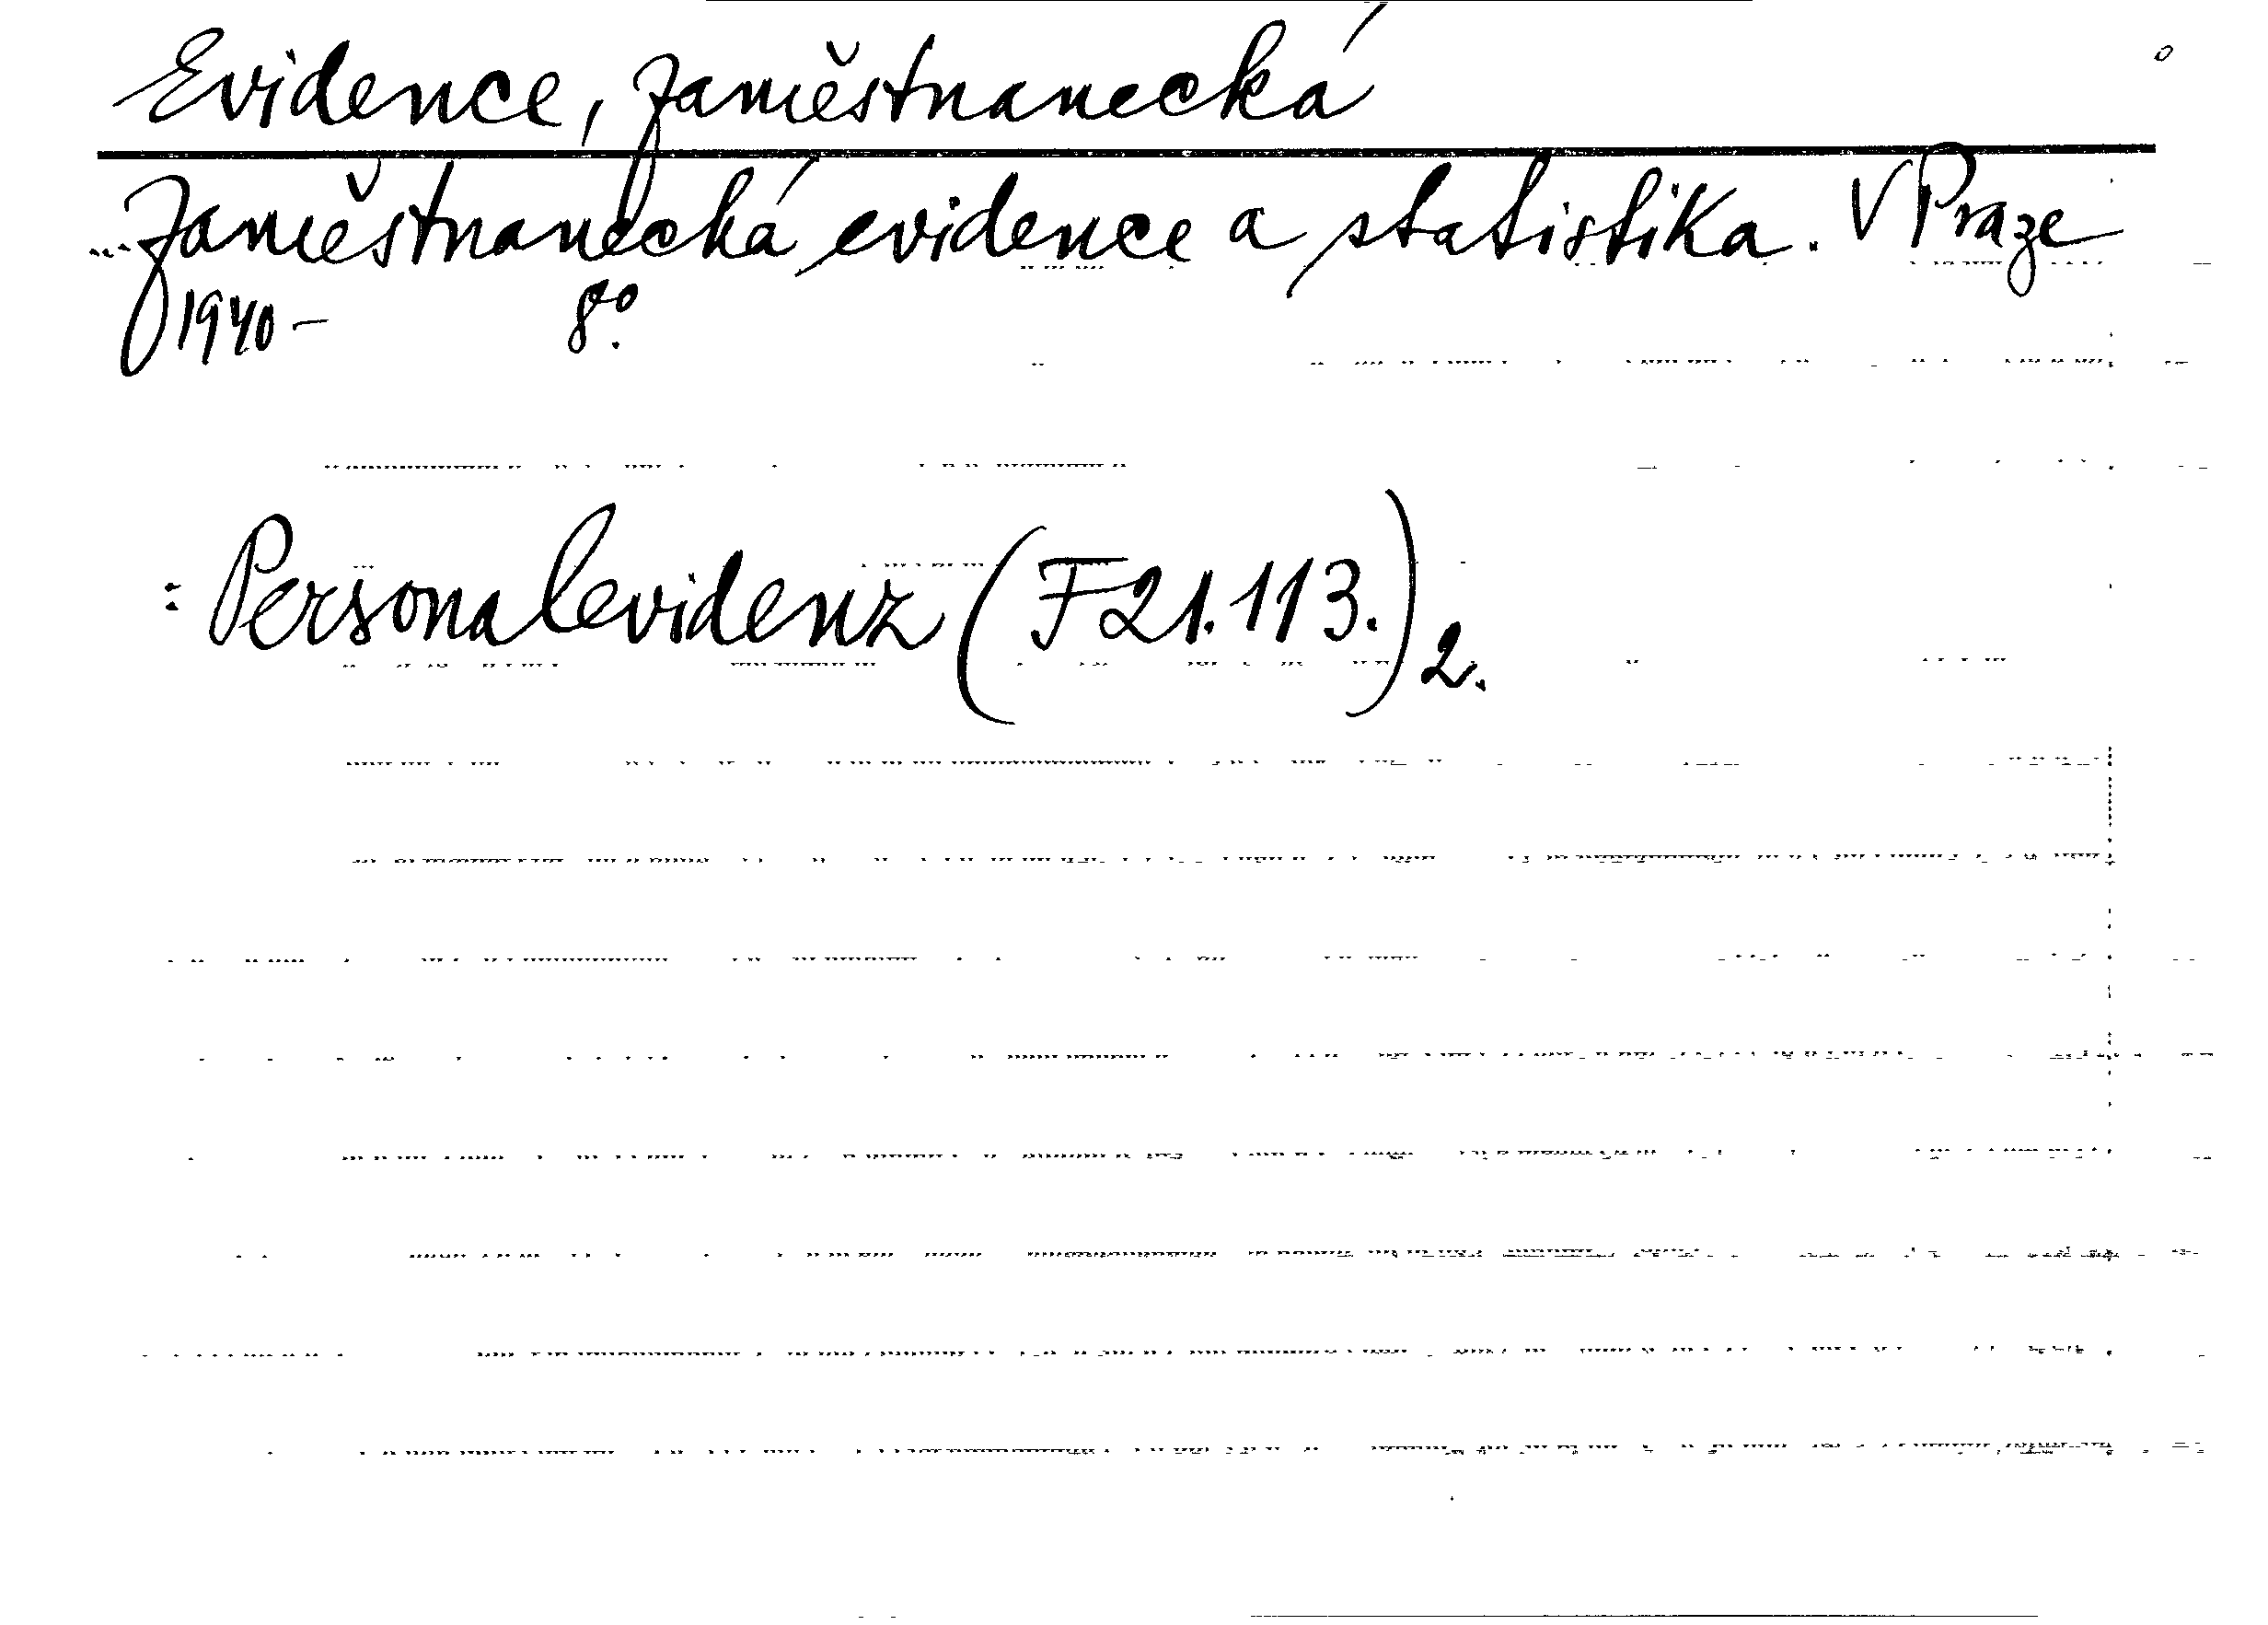 Evidence, zaměstnanecká
Zaměstnanecká evidence a statistika. V Praze
1940 – 8°.
= Personalevidenz (F21.113.) 2.